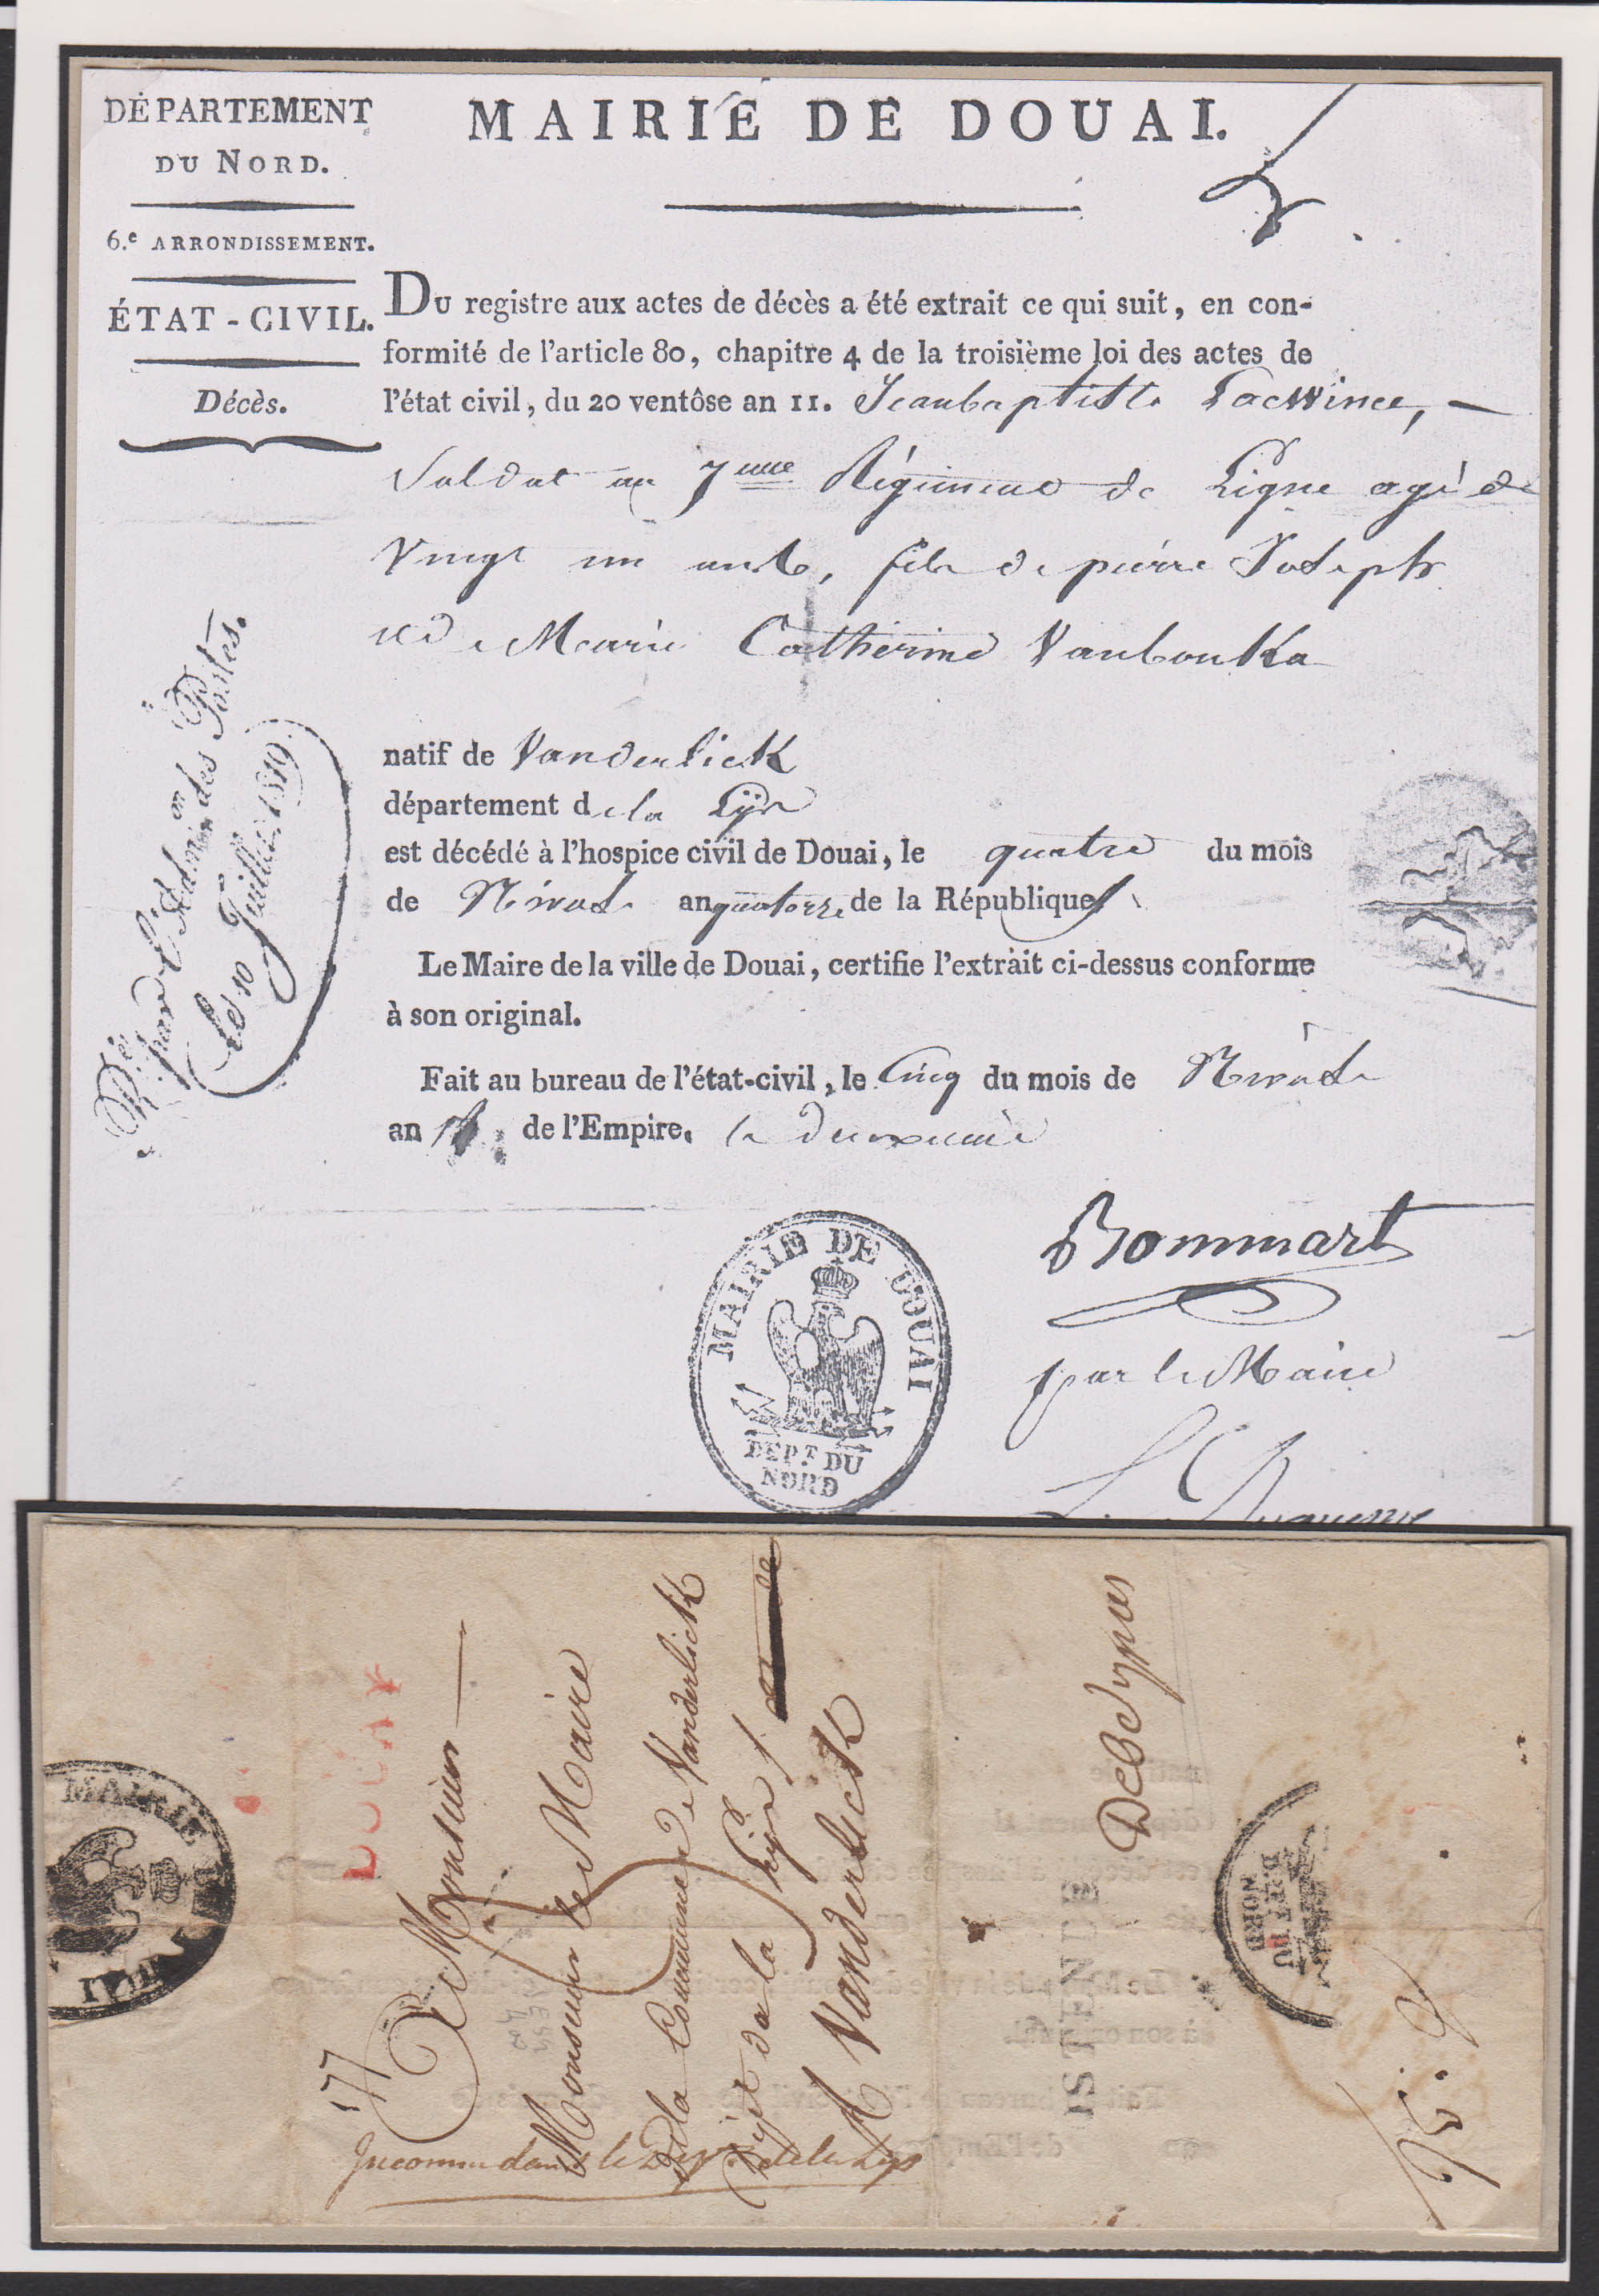 DÉPARTEMENT
DU NORD.
6.e ARRONDISSEMENT.
ÉTAT-CIVIL.
Décès.
MAIRIE DE DOUAI.
DU registre aux actes de décès a été extrait ce qui suit, en con-
formité de l'article 80, chapitre 4 de la troisième loi des actes de
l'état civil, du 20 ventôse an 11. Jeanbaptiste
Soldat au 7eme Régiment de Ligne agé de
Vingt un ans, fils de pierre Joseph
et de Marie Catherine Vanbouka
natif de Vanderlick
département de la Lÿs
est décédé à l'hospice civil de Douai, le quatre du mois
de Nivose an quatorze de la République
Le Maire de la ville de Douai, certifie l'extrait ci-dessus conforme
à son original.
Fait au bureau de l'état-civil, le Cinq du mois de Nivose
an 14 de l'Empire. le deuxieme
Bommart
par le Maire
MAIRIE DE DOUAI
DEP.T DU
NORD
Ré par l'Admion des Postes.
le 10 Juillet 1819
MAIRIE DE DOUAI
DOUAY
177
A Monsieur
Monsieur le Maire
de la Commune de Vanderlick
Dept de la Lÿs
A Vanderlick
Inconnu dans le Depart de la Lys
DEP.T DU
NORD